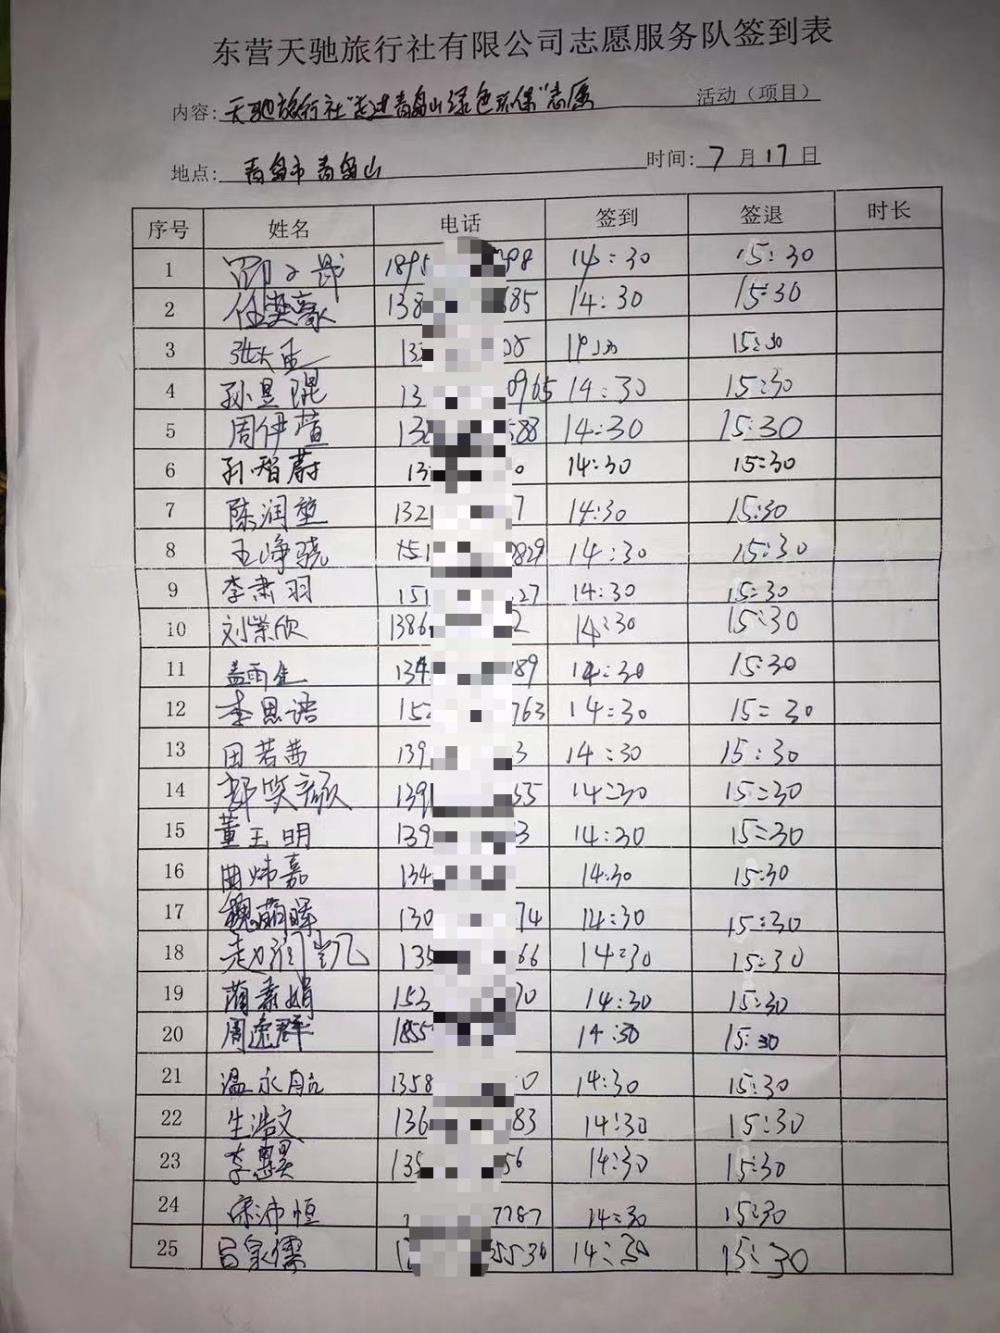 东营天驰旅行社有限公司志愿服务队签到表
内容: 天驰旅行社"走进青岛山绿色环保"志愿 活动（项目）
地点: 青岛市青岛山 时间: 7 月 17 日
序号 姓名 电话 签到 签退 时长
1 1895 798 14:30 15:30
2 任奕豪 138 685 14:30 15:30
3 13 08 15:30
4 孙昱琨 13 0965 14:30 15:30
5 周伊萱 13 588 14:30 15:30
6 孙智蔚 13 0 14:30 15:30
7 陈润堃 132 7 14:30 15:30
8 王峥骁 151 0829 14:30 15:30
9 李肃羽 151 27 14:30 15:30
10 刘荣欣 1386 2 14:30 15:30
11 孟雨生 134 189 14:30 15:30
12 李思语 152 763 14:30 15:30
13 田若茜 139 3 14:30 15:30
14 郭笑 139 55 14:30 15:30
15 董玉明 139 3 14:30 15:30
16 曲炜嘉 134 14:30 15:30
17 魏萌晖 130 74 14:30 15:30
18 赵润凯 135 66 14:30 15:30
19 蔺素娟 153 70 14:30 15:30
20 周远群 1855 14:30 15:30
21 温永航 1358 0 14:30 15:30
22 生浩文 136 83 14:30 15:30
23 李 135 56 14:30 15:30
24 宋沛恒 7787 14:30 15:30
25 吕家儒 1 55536 14:30 15:30